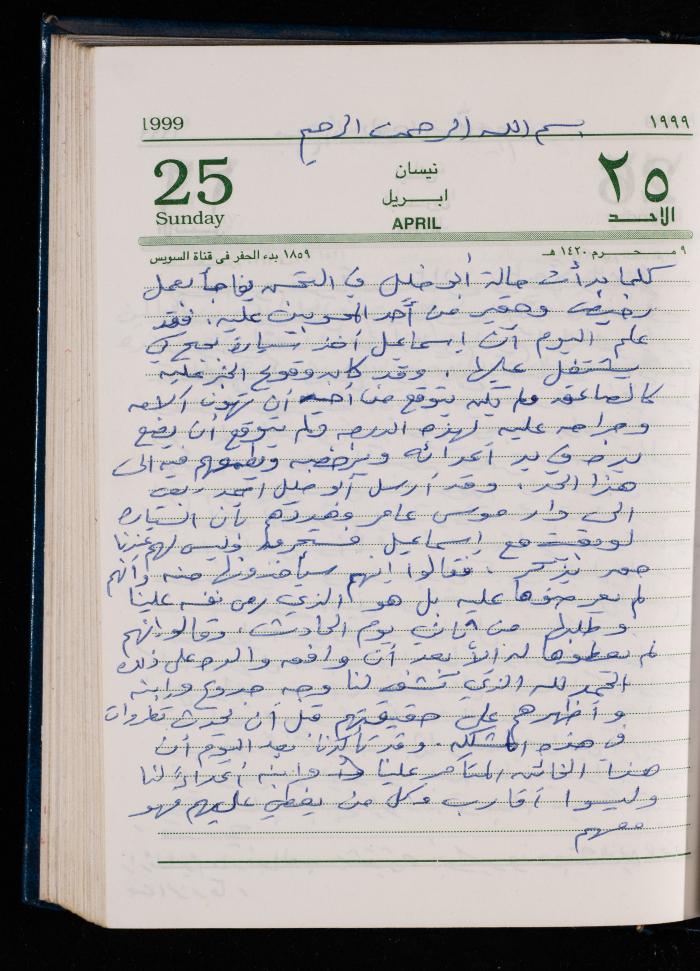 1999 ١٩٩٩
بسم الله الرحمن الرحيم
25 نيسان ٢٥
ابريل
Sunday APRIL الاحد
٩ محرم ١٤٢٠ هـ ١٨٥٩ بدء الحفر فى قناة السويس
كلما بدأت حالة أبو خليل في التحسن يفاجأ بعمل
رخيص وحقير من أحد المحسوبين عليه، فقد
علم اليوم أن إسماعيل أخذ سيارة لكي
يشتغل عليها، وقد كان وقوع الخبر عليه
كالصاعقة ولم يكن يتوقع من أن تهون آلامه
وجراحه عليه لهذه الدرجة ولم يتوقع أن يضع
يده في يد أعدائه ويطمعهم فيه الى
هذا الحد، وقد أرسل أبو خليل
الى دار موسى عامر وهددهم بأن السيارة
لو بقيت مع إسماعيل وليس لهم عندنا
فقالوا إنهم سيأخذونها منه وأنهم
لم يعرضوها عليه بل هو الذي نفسه علينا
وطلبها من ثاني يوم الحادث، وقالوا إنهم
لم يعطوها له إلا بعد أن وافقه والده على ذلك
الحمد لله الذي كشف لنا وجه وابنه
وأظهرهم على حقيقتهم قبل أن تحدث تطورات
في هذه المشكلة. وقد تأكدنا بعد اليوم أن
هذا الخائن المتآمر علينا هو وابنه أعداء لنا
وليسوا أقارب وكل من يغطي عليهم فهو
معهم